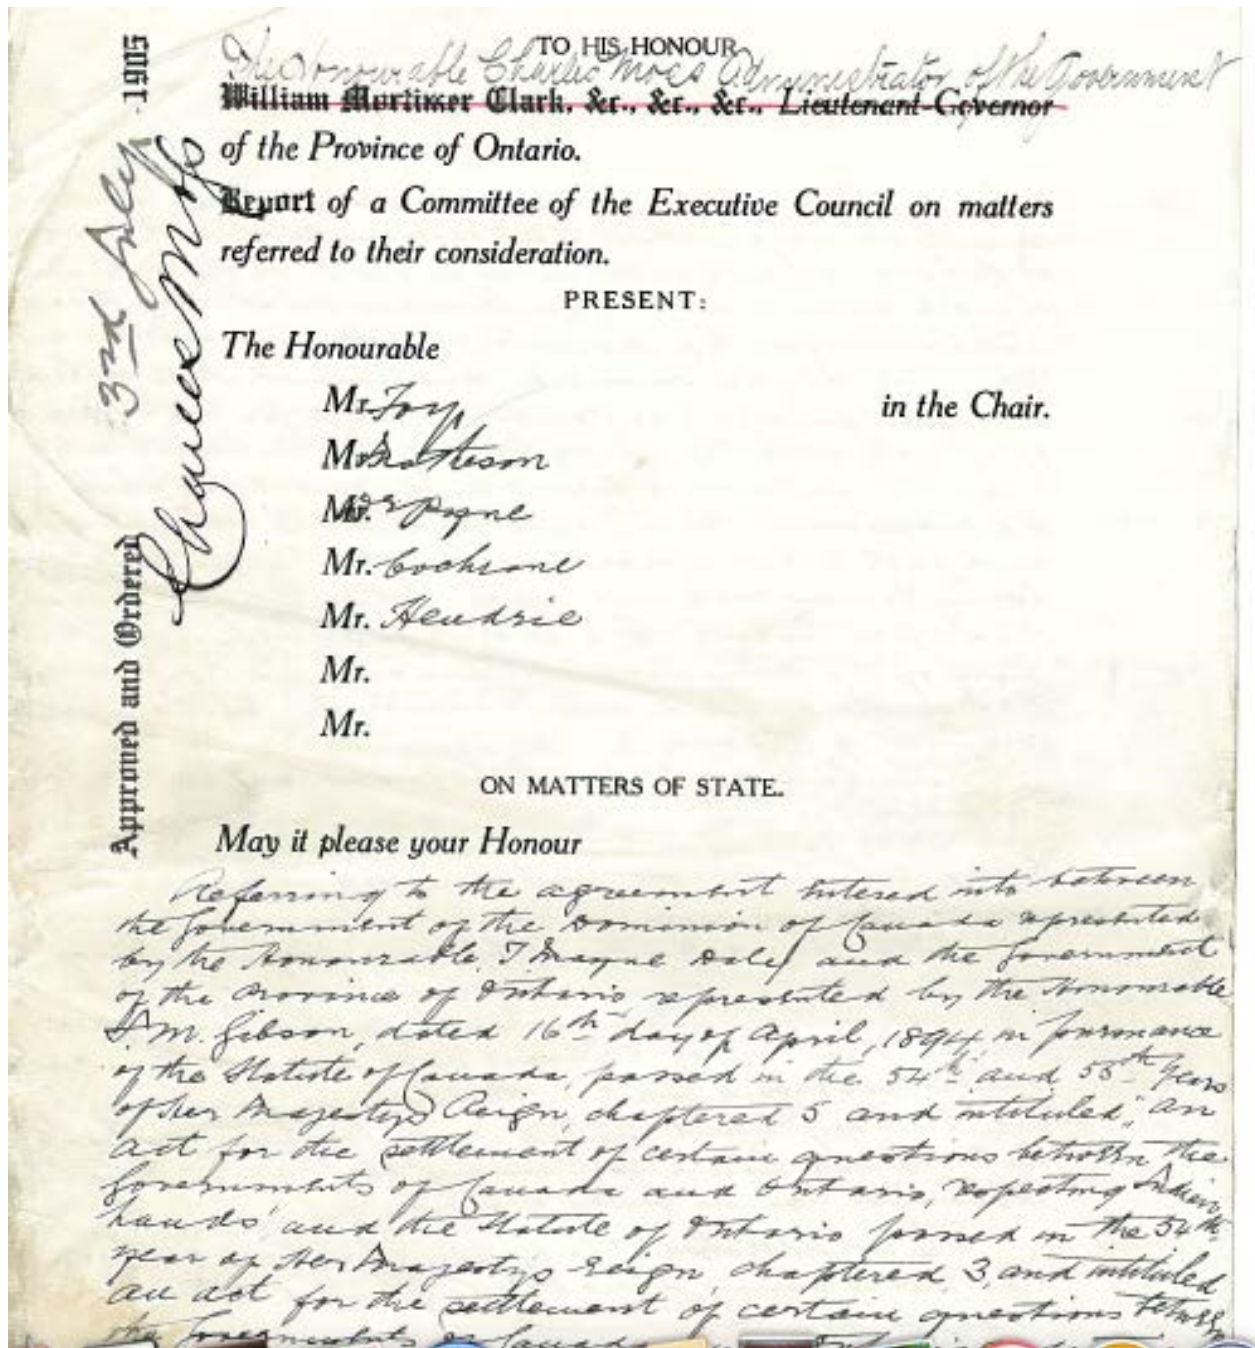 TO HIS HONOUR
The Honourable Charles Moss Administrator of the Government
William Mortimer Clark, &c., &c., &c., Lieutenant-Governor
of the Province of Ontario.
Report of a Committee of the Executive Council on matters
referred to their consideration.
PRESENT:
The Honourable
Mr. Foy in the Chair.
Mr. Matheson
Mr. Dr Pyne
Mr. Cochrane
Mr. Hendrie
Mr.
Mr.
ON MATTERS OF STATE.
May it please your Honour
Referring to the agreement entered into between
the Government of the Dominion of Canada represented
by the Honourable T Mayne Daly and the Government
of the Province of Ontario represented by the Honourable
J. M. Gibson, dated 16th day of April, 1894, in pursuance
of the Statute of Canada, passed in the 54th and 55th years
of Her Majesty's Reign, chaptered 5 and intituled, "An
act for the settlement of certain questions between the
Governments of Canada and Ontario, respecting Indian
Lands" and the Statute of Ontario passed in the 54th
year of Her Majesty's reign, chaptered 3, and intituled
an act for the settlement of certain questions between
the Governments of Canada
Approved and Ordered 3rd July 1905
Charles Moss